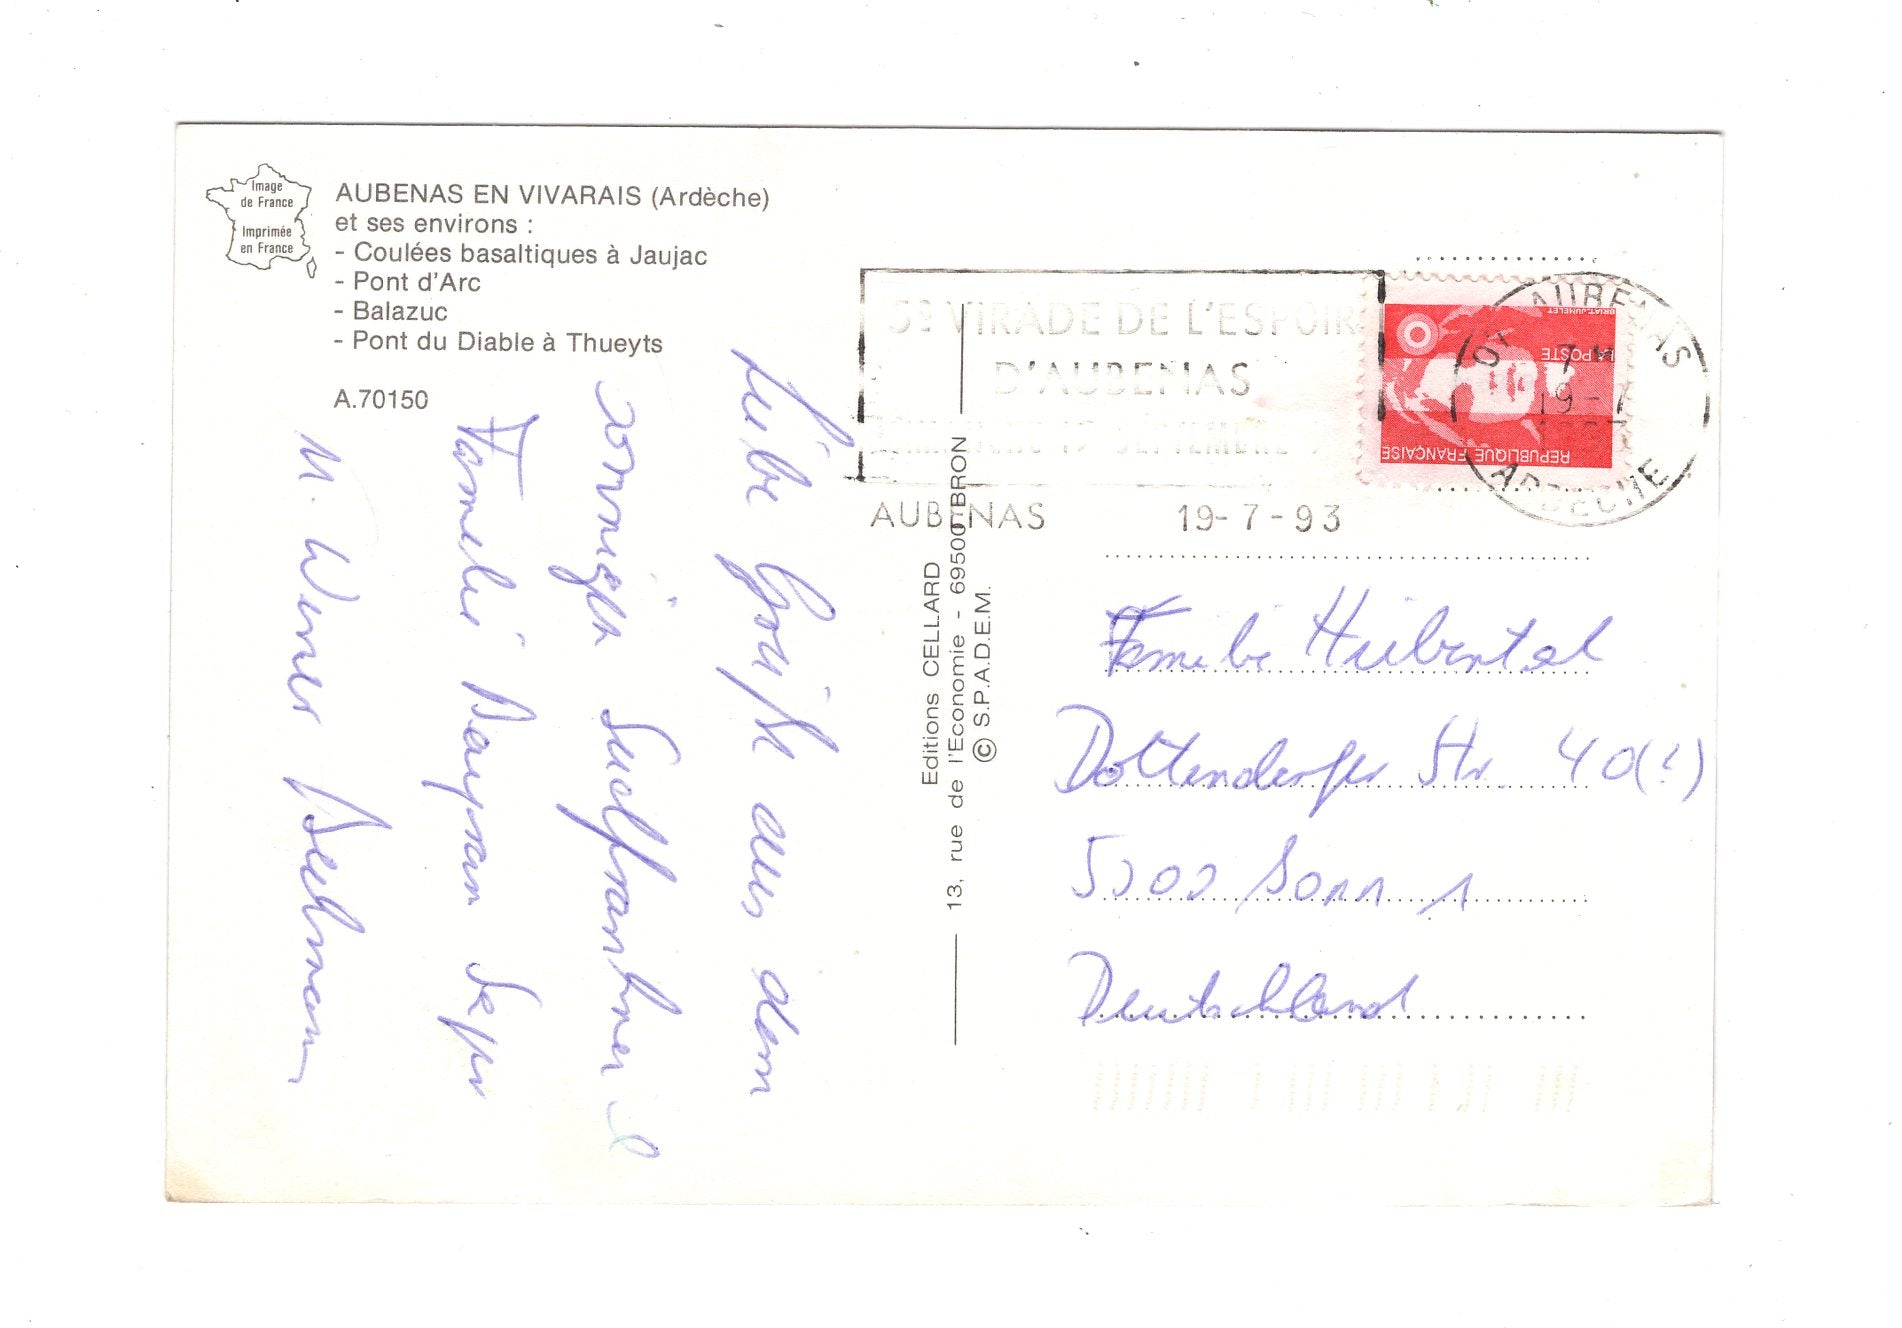 Image
de France
Imprimée
en France
AUBENAS EN VIVARAIS (Ardèche)
et ses environs :
- Coulées basaltiques à Jaujac
- Pont d'Arc
- Balazuc
- Pont du Diable à Thueyts
A.70150
Liebe Grüße aus dem
sonnigen Südfrankreich
Familie
M. Werner
Editions CELLARD
13, rue de l'Economie - 69500 BRON
© S.P.A.D.E.M.
5e VIRADE DE L'ESPOIR
D'AUBENAS
SEPTEMBRE
AUBENAS 19-7-93
REPUBLIQUE FRANÇAISE
LA POSTE
BRIAT-JUMELET
07 AUBENAS
19-7
ARDECHE
Familie
Dottendorfer Str. 40(?)
5300 Bonn 1
Deutschland